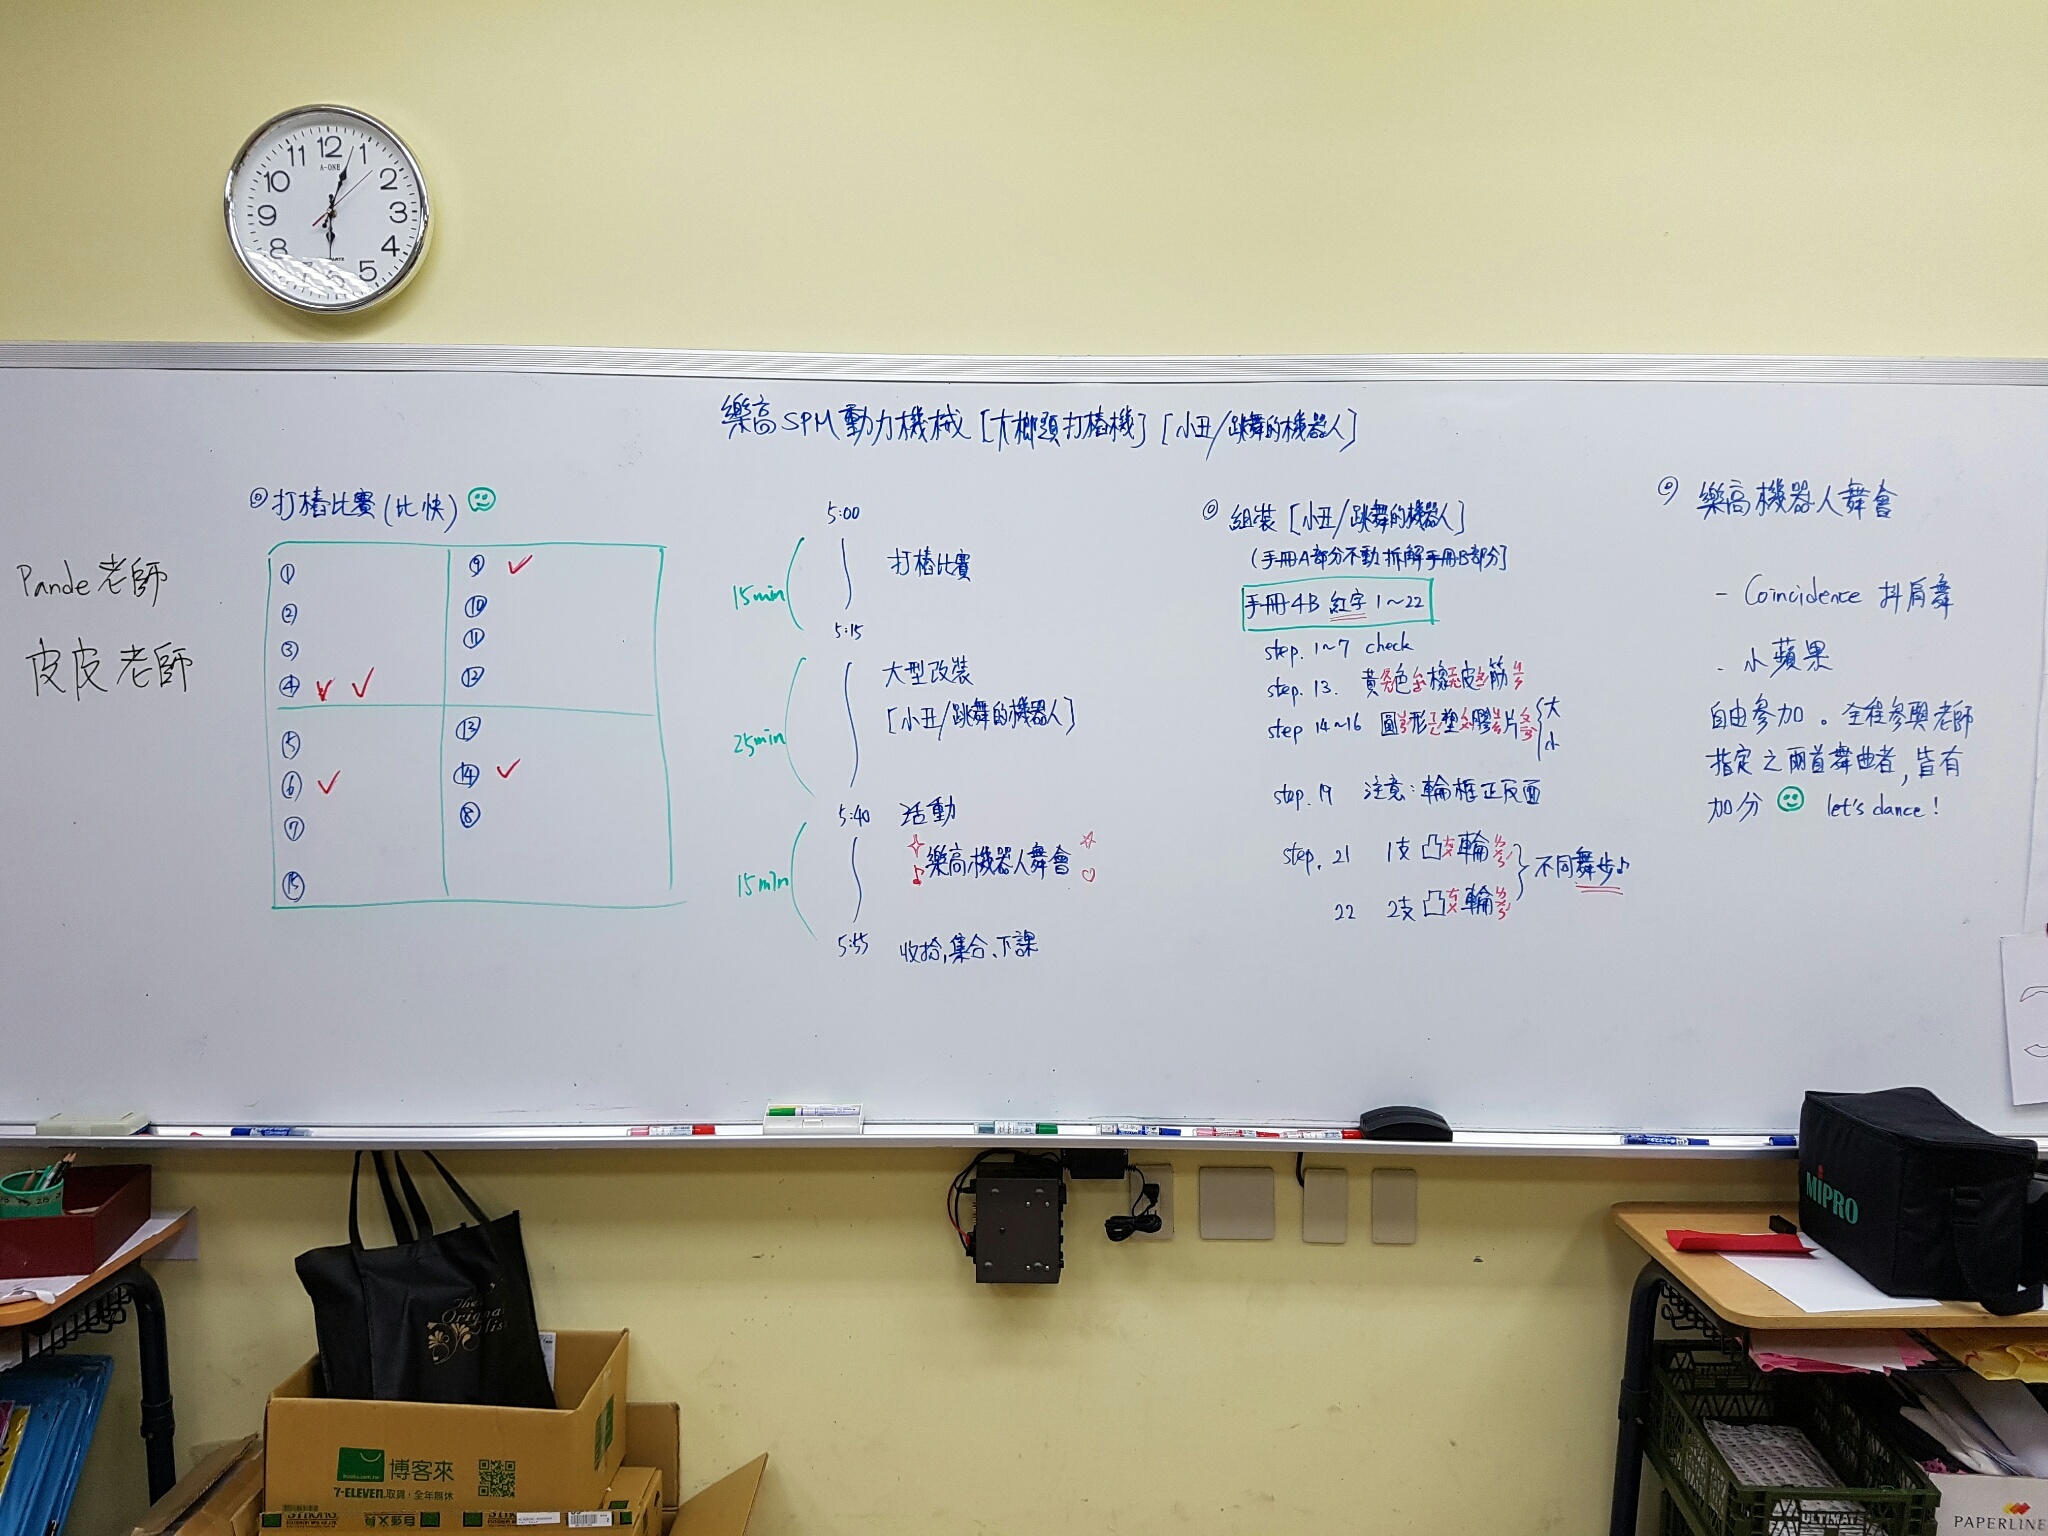 12
1
2
3
4
5
6
7
8
9
10
11
A-ONE
樂高SPM動力機械[大榔頭打樁機][小丑/跳舞的機器人]
Pande老師
皮皮老師
◎打樁比賽(比快)
① 
②
③
④ ✓ ✓
⑤
⑥ ✓
⑦
⑮
⑨ ✓
⑩
⑪
⑫
⑬
⑭ ✓
⑧
5:00
15min 打樁比賽
5:15
大型改裝
25min [小丑/跳舞的機器人]
5:40 活動
15min 樂高機器人舞會
5:55 收拾,集合、下課
◎組裝[小丑/跳舞的機器人]
(手冊A部分不動 拆解手冊B部分]
手冊4B 紅字 1~22
step. 1~7 check
step. 13. 黃ㄏㄨㄤˊ色ㄙㄜˋ橡ㄒㄧㄤˋ皮ㄆㄧˊ筋ㄐㄧㄣ
step 14~16 圓ㄩㄢˊ形ㄒㄧㄥˊ塑ㄙㄨˋ膠ㄐㄧㄠ片ㄆㄧㄢˋ{大
小
step. 19 注意:輪框正反面
step. 21 1支凸ㄊㄨ輪ㄌㄨㄣˊ
22 2支凸ㄊㄨ輪ㄌㄨㄣˊ
}不同舞步♪
◎ 樂高機器人舞會
- Coincidence 抖肩舞
- 小蘋果
自由參加。全程參與老師
指定之兩首舞曲者,皆有
加分 let's dance!
MIPRO
The
Origina
博客來
books.com.tw
7-ELEVEN.取貨,全年無休
STRONG
自強文具
ULTIMATE
PAPERLINE